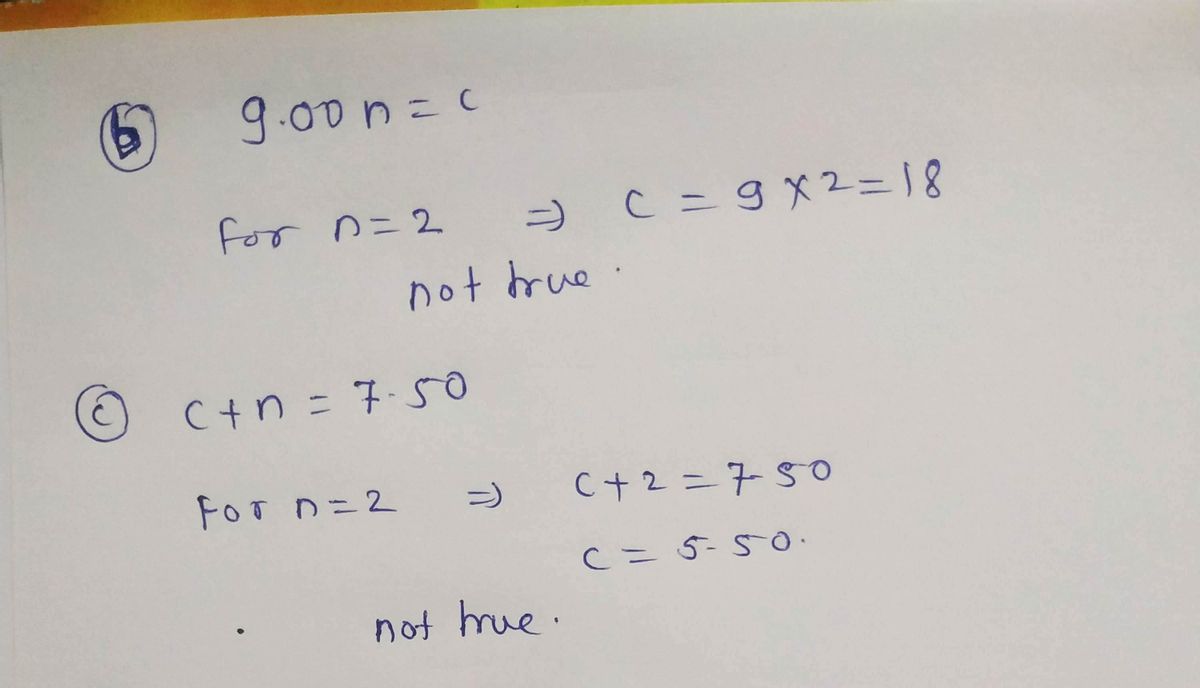 (b) 9.00 n = c
For n = 2 ⇒ c = 9 × 2 = 18
not true.
(c) c + n = 7.50
For n = 2 ⇒ c + 2 = 7.50
c = 5.50.
not true.